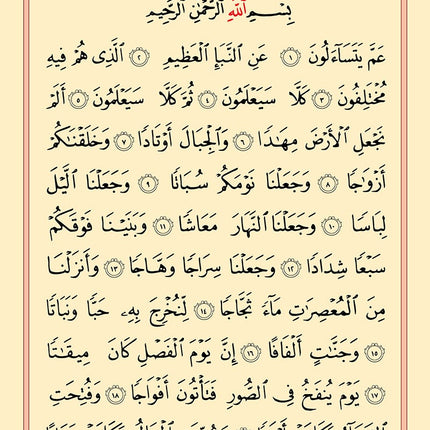 بِسْمِ ٱللَّهِ ٱلرَّحْمَٰنِ ٱلرَّحِيمِ
عَمَّ يَتَسَآءَلُونَ ١ عَنِ ٱلنَّبَإِ ٱلْعَظِيمِ ٢ ٱلَّذِى هُمْ فِيهِ
مُخْتَلِفُونَ ٣ كَلَّا سَيَعْلَمُونَ ٤ ثُمَّ كَلَّا سَيَعْلَمُونَ ٥ أَلَمْ
نَجْعَلِ ٱلْأَرْضَ مِهَٰدًا ٦ وَٱلْجِبَالَ أَوْتَادًا ٧ وَخَلَقْنَٰكُمْ
أَزْوَٰجًا ٨ وَجَعَلْنَا نَوْمَكُمْ سُبَاتًا ٩ وَجَعَلْنَا ٱلَّيْلَ
لِبَاسًا ١٠ وَجَعَلْنَا ٱلنَّهَارَ مَعَاشًا ١١ وَبَنَيْنَا فَوْقَكُمْ
سَبْعًا شِدَادًا ١٢ وَجَعَلْنَا سِرَاجًا وَهَّاجًا ١٣ وَأَنزَلْنَا
مِنَ ٱلْمُعْصِرَٰتِ مَآءً ثَجَّاجًا ١٤ لِّنُخْرِجَ بِهِۦ حَبًّا وَنَبَاتًا
١٥ وَجَنَّٰتٍ أَلْفَافًا ١٦ إِنَّ يَوْمَ ٱلْفَصْلِ كَانَ مِيقَٰتًا
١٧ يَوْمَ يُنفَخُ فِى ٱلصُّورِ فَتَأْتُونَ أَفْوَاجًا ١٨ وَفُتِحَتِ